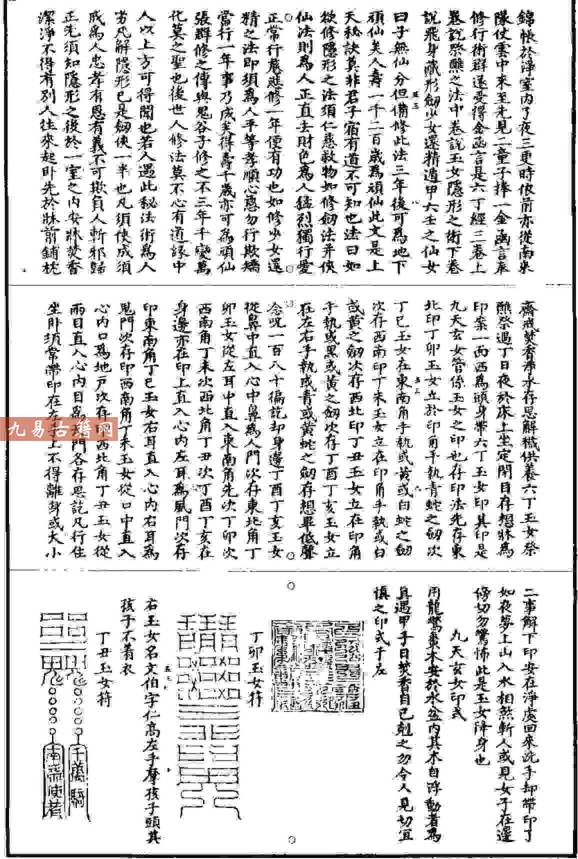 錦帳於淨室內了夜三更時依前亦從南來
隊仗雲中來至先見二童子捧一金函言哀
修行術群遂受得金函言是六丁經三卷上
卷說祭醮之法中卷說玉女隱形之術下卷
說飛身藏形劔少女還精遁甲六壬之仙女
曰子無仙分但備修此法三年後可為地下
頑仙矣人壽一千二百歲為頑仙此文是上
天秘訣莫非君子宿有道不可知也法曰如
欲修隱形之法須仁慈救物如修劔法并俠
仙法則為人正直去財色為人猛烈獨行愛
正常行慈愍修一年便有功也如修少女還
精之法即須為人平等孝順心慈勿行欺矯
當行一年事乃成矣得壽千歲亦可為頑仙
張群修之傳與鬼谷子修之不三年千變萬
化莫之聖也後世人修法莫不心有道緣中
人以上方可得聞也若人遇此秘法術為人
若凡解隱形已是劔俠一半也凡須俠成須
成為人忠孝有恩有義不可欺負人斬邪歸
正先須知隱形之後於一室之內安牀焚香
潔淨不得有別人往來起卧先於牀前鋪枕
齋戒焚香淨水存思解穢供養六丁玉女祭
醮祭過丁日夜於床上坐定閉目存想牀為
印案一面西為頭身帶六丁玉女印其印是
九天玄女管係玉女之印也存印法先存東
北印丁卯玉女立於印角手執青蛇之劔次
丁巳玉女在東南角手執或黃或白蛇之劔
次存西南印丁未玉女立在印角手執或白
或黃之劔次存西北印丁丑玉女立在印角
手執或黑或黃之劔次存丁酉丁亥玉女立
在左右手執或青或黃蛇之劔存想畢低聲
念呪一百八十徧訖却身邊丁酉丁亥玉女
從鼻中直入心中鼻為人門次存東北角丁
卯玉女從左耳中直入東南角先次丁卯次
西南角丁未次西北角丁丑次丁酉丁亥在
身邊亦在印上直入心內左耳為風門次存
印東南角丁巳玉女右耳直入心內右耳為
鬼門次存印西南角丁未玉女從口中直入
心內口為地戶次存印西北角丁丑玉女從
兩目直入心內目為天門各存思訖凡行住
坐卧須常帶印在左手上不得離身或大小
二事解下印安在淨處回來洗手却帶印了
如夜夢上山入水相煞斬人或見女子在邊
傍切勿驚怖此是玉女降身也
九天玄女印式
用龍驚棗木安於水盆內其木自浮動者為
真遇甲子日焚香自己剋之勿令人見切宜
慎之印式于左
丁卯玉女符
右玉女名文伯字仁高左手摩孩子頭其
孩子不着衣
丁丑玉女符
千萬騎
南㪷使者
九易古籍网